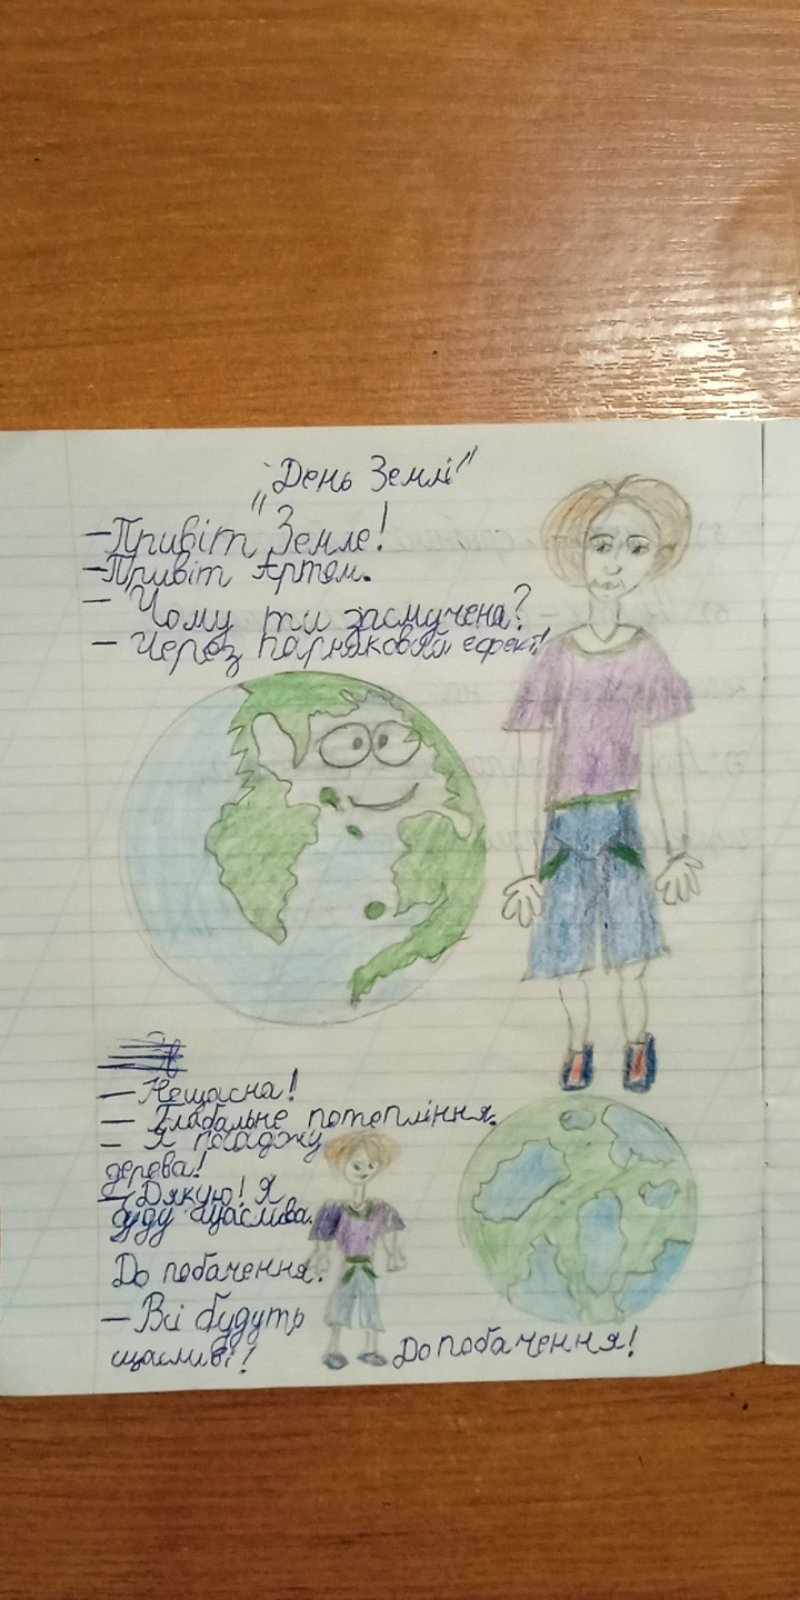 „День Землі"
— Привіт Земле!
— Привіт Артем.
— Чому ти засмучена?
— Через парниковий ефект!
— Нещасна!
— Глабальне потепління.
— Я посаджу
дерева!
— Дякую! Я
буду щаслива.
До побачення.
— Всі будуть
щасливі!
До побачення!